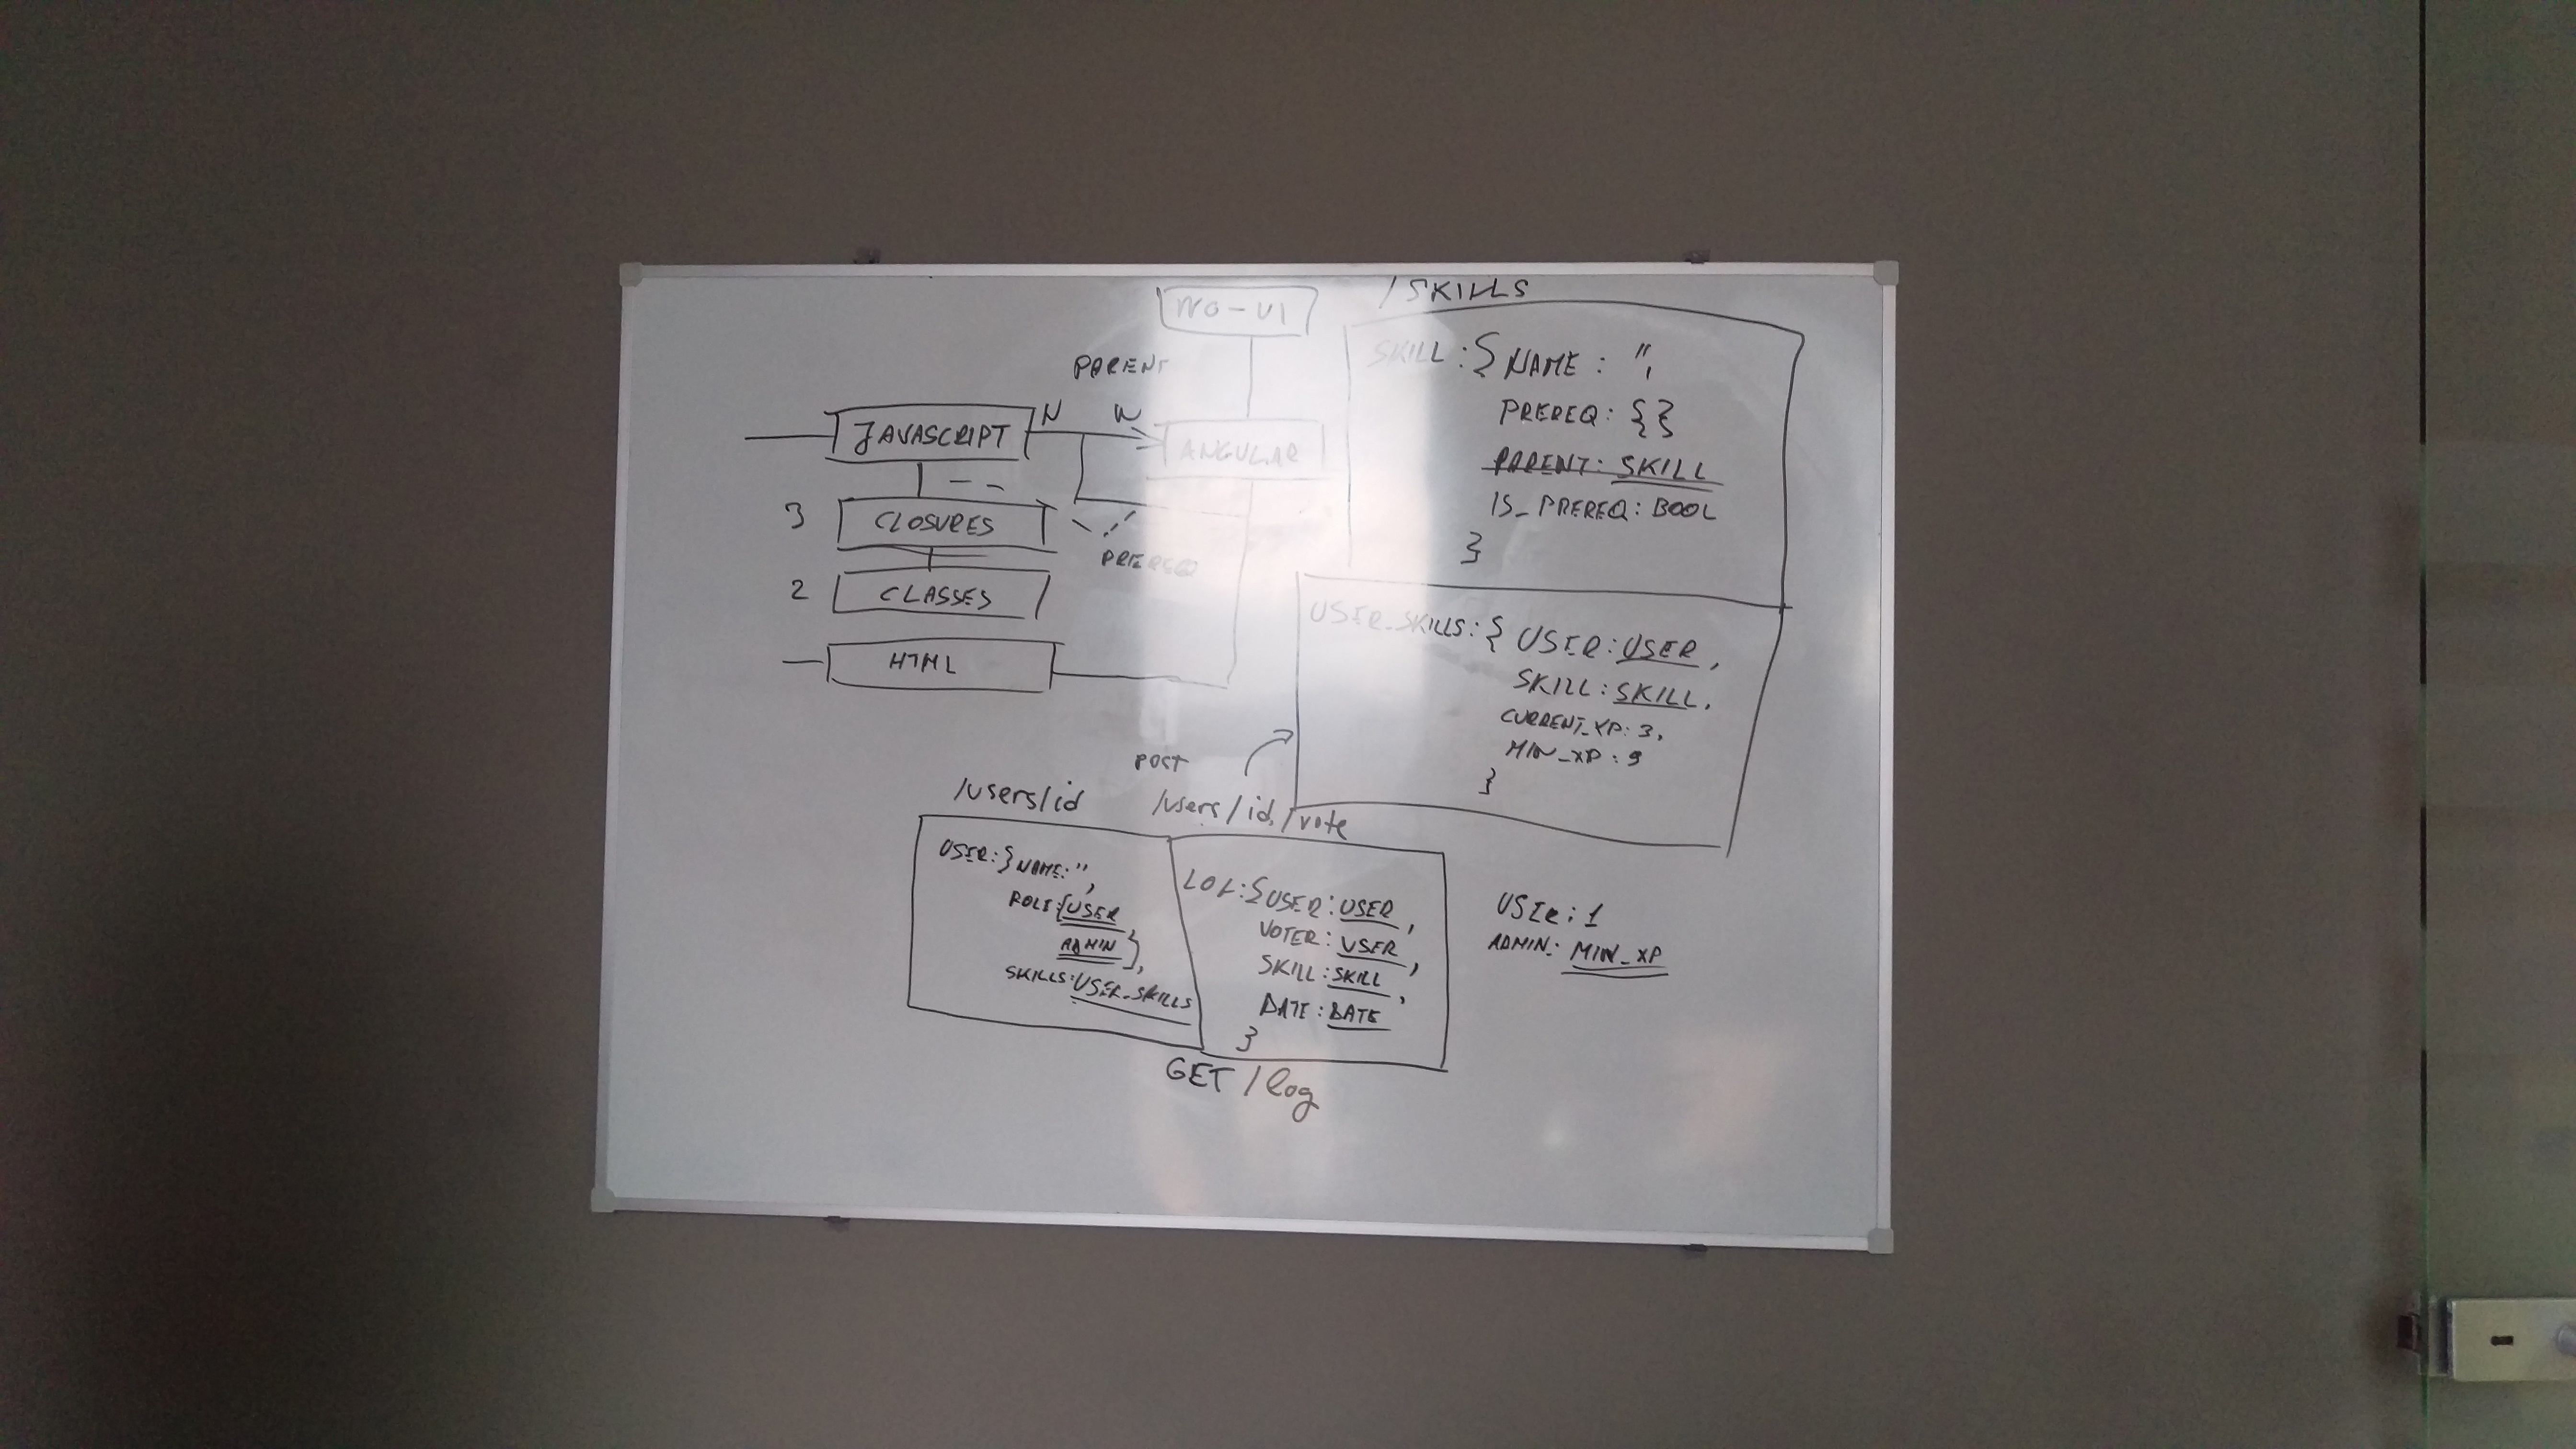 /SKILLS
NG-UI
PARENT
JAVASCRIPT
N
N
ANGULAR
3
CLOSURES
PREREQ
2
CLASSES
HTML
SKILL:{ NAME: ",
PREREQ: {}
PARENT: SKILL
IS_PREREQ: BOOL
}
USER_SKILLS:{ USER:USER,
SKILL:SKILL,
CURRENT_XP: 3,
MIN_XP: 9
}
POST
/users/id
/users/id/vote
USER:{NAME:",
ROLE:{USER,
ADMIN},
SKILLS:USER_SKILLS
LOG:{USER:USER,
VOTER:USER,
SKILL:SKILL,
DATE:DATE
}
GET /log
USER: 1
ADMIN: MIN_XP